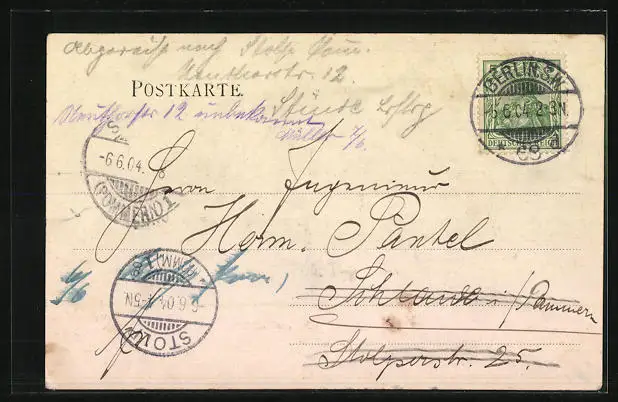 Abgereist nach Stolp Pom.
12.
POSTKARTE.
12 unbekannt
Müller 7/6
BERLIN S.W.
5.6.04. 2-3N
* 68 d
DEUTSCHES REICH
-6.6.04.
(POMMERN) 1
Herrn Ingenieur
Herm. Päntel
Schlawe i/Pommern
Stolperstr. 25.
STOLP
-6.6.04. 4-5N.
(POMM.) 1